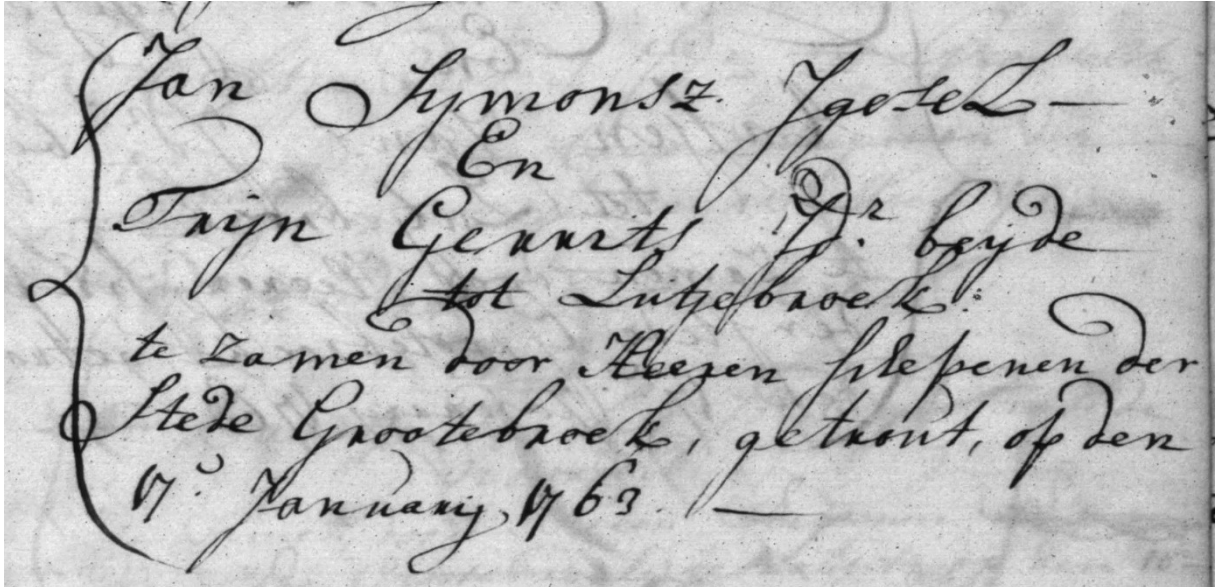 Jan Symonsz. Jgesel —
En
Trijn Gerrits Dr. beyde
tot Lutjebroek:
te zamen door Heeren schepenen der
Stede Grootebroek, getrout, op den
17e. January 1763. —